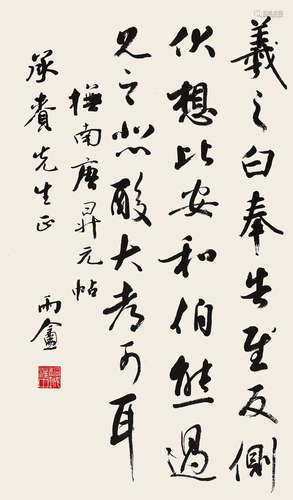 羲之白奉告慰反側
伏想比安和伯熊過
見之悲酸大可耳
橅南唐昇元帖
承貴先生正
雨盦